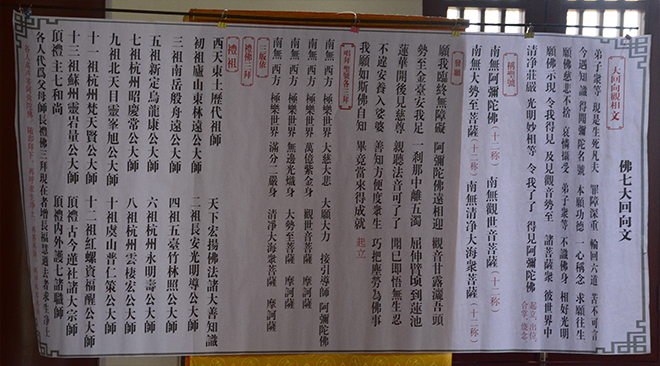 佛七大回向文
大回向觀想文
弟子衆等 現是生死凡夫 罪障深重 輪回六道 苦不可言
今遇知識 得聞彌陀名號 本願功德 一心稱念 求願往生
願佛慈悲不捨 哀憐攝受 弟子衆等 不識佛身 相好光明
願佛示現 令我得見 及見觀音勢至 諸菩薩衆 彼世界中
清净莊嚴 光明妙相等 令我了了 得見阿彌陀佛
稱聖號
南無阿彌陀佛（十二称） 南無觀世音菩薩（十二称）
南無大勢至菩薩（十二称） 南無清净大海衆菩薩（十二称）
發願
願我臨終無障礙 阿彌陀佛遠相迎 觀音甘露灑吾頭
勢至金臺安我足 一刹那中離五濁 屈伸臂頃到蓮池
蓮華開後見慈尊 親聽法音可了了 聞已即悟無生忍
不違安養入娑婆 善知方便度衆生 巧把塵勞為佛事
我願如斯佛自知 畢竟當來得成就 起立
唱拜聖號各三拜
南無西方 極樂世界 大慈大悲 大願大力 接引導師 阿彌陀佛
南無西方 極樂世界 萬億紫金身 觀世音菩薩 摩訶薩
南無西方 極樂世界 無邊光熾身 大勢至菩薩 摩訶薩
南無西方 極樂世界 滿分二嚴身 清净大海衆菩薩 摩訶薩
禮佛三拜
禮祖
西天東土歷代祖師 天下宏揚佛法諸大善知識
初祖廬山東林遠公大師 二祖長安光明導公大師
三祖南岳般舟遠公大師 四祖五臺竹林照公大師
五祖新定烏龍康公大師 六祖杭州永明壽公大師
七祖杭州昭慶常公大師 八祖杭州雲棲宏公大師
九祖北天目靈峯旭公大師 十祖虞山普仁策公大師
十一祖杭州梵天賢公大師 十二祖紅螺資福醒公大師
十三祖蘇州靈岩量公大師 頂禮古今蓮社諸大宗師
頂禮主七和尚 頂禮内外護七諸職師
各人代為父母師長禮佛三拜現在者增長福慧過去者求生淨土